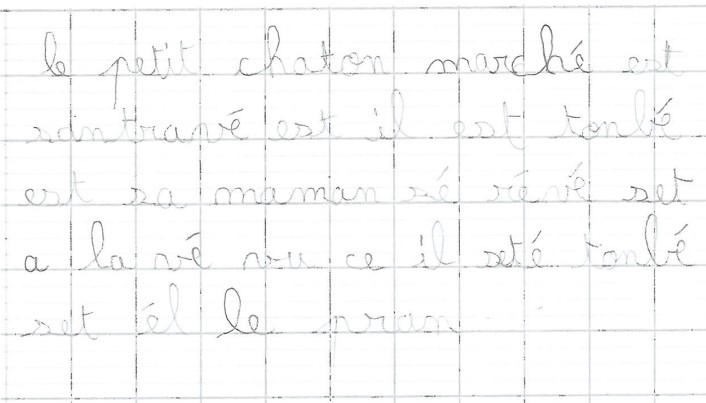 le petit chaton marché est
santravé est il est tonbé
est sa maman sé révé set
a la vé vu ce il seté tonbé
set él le pran